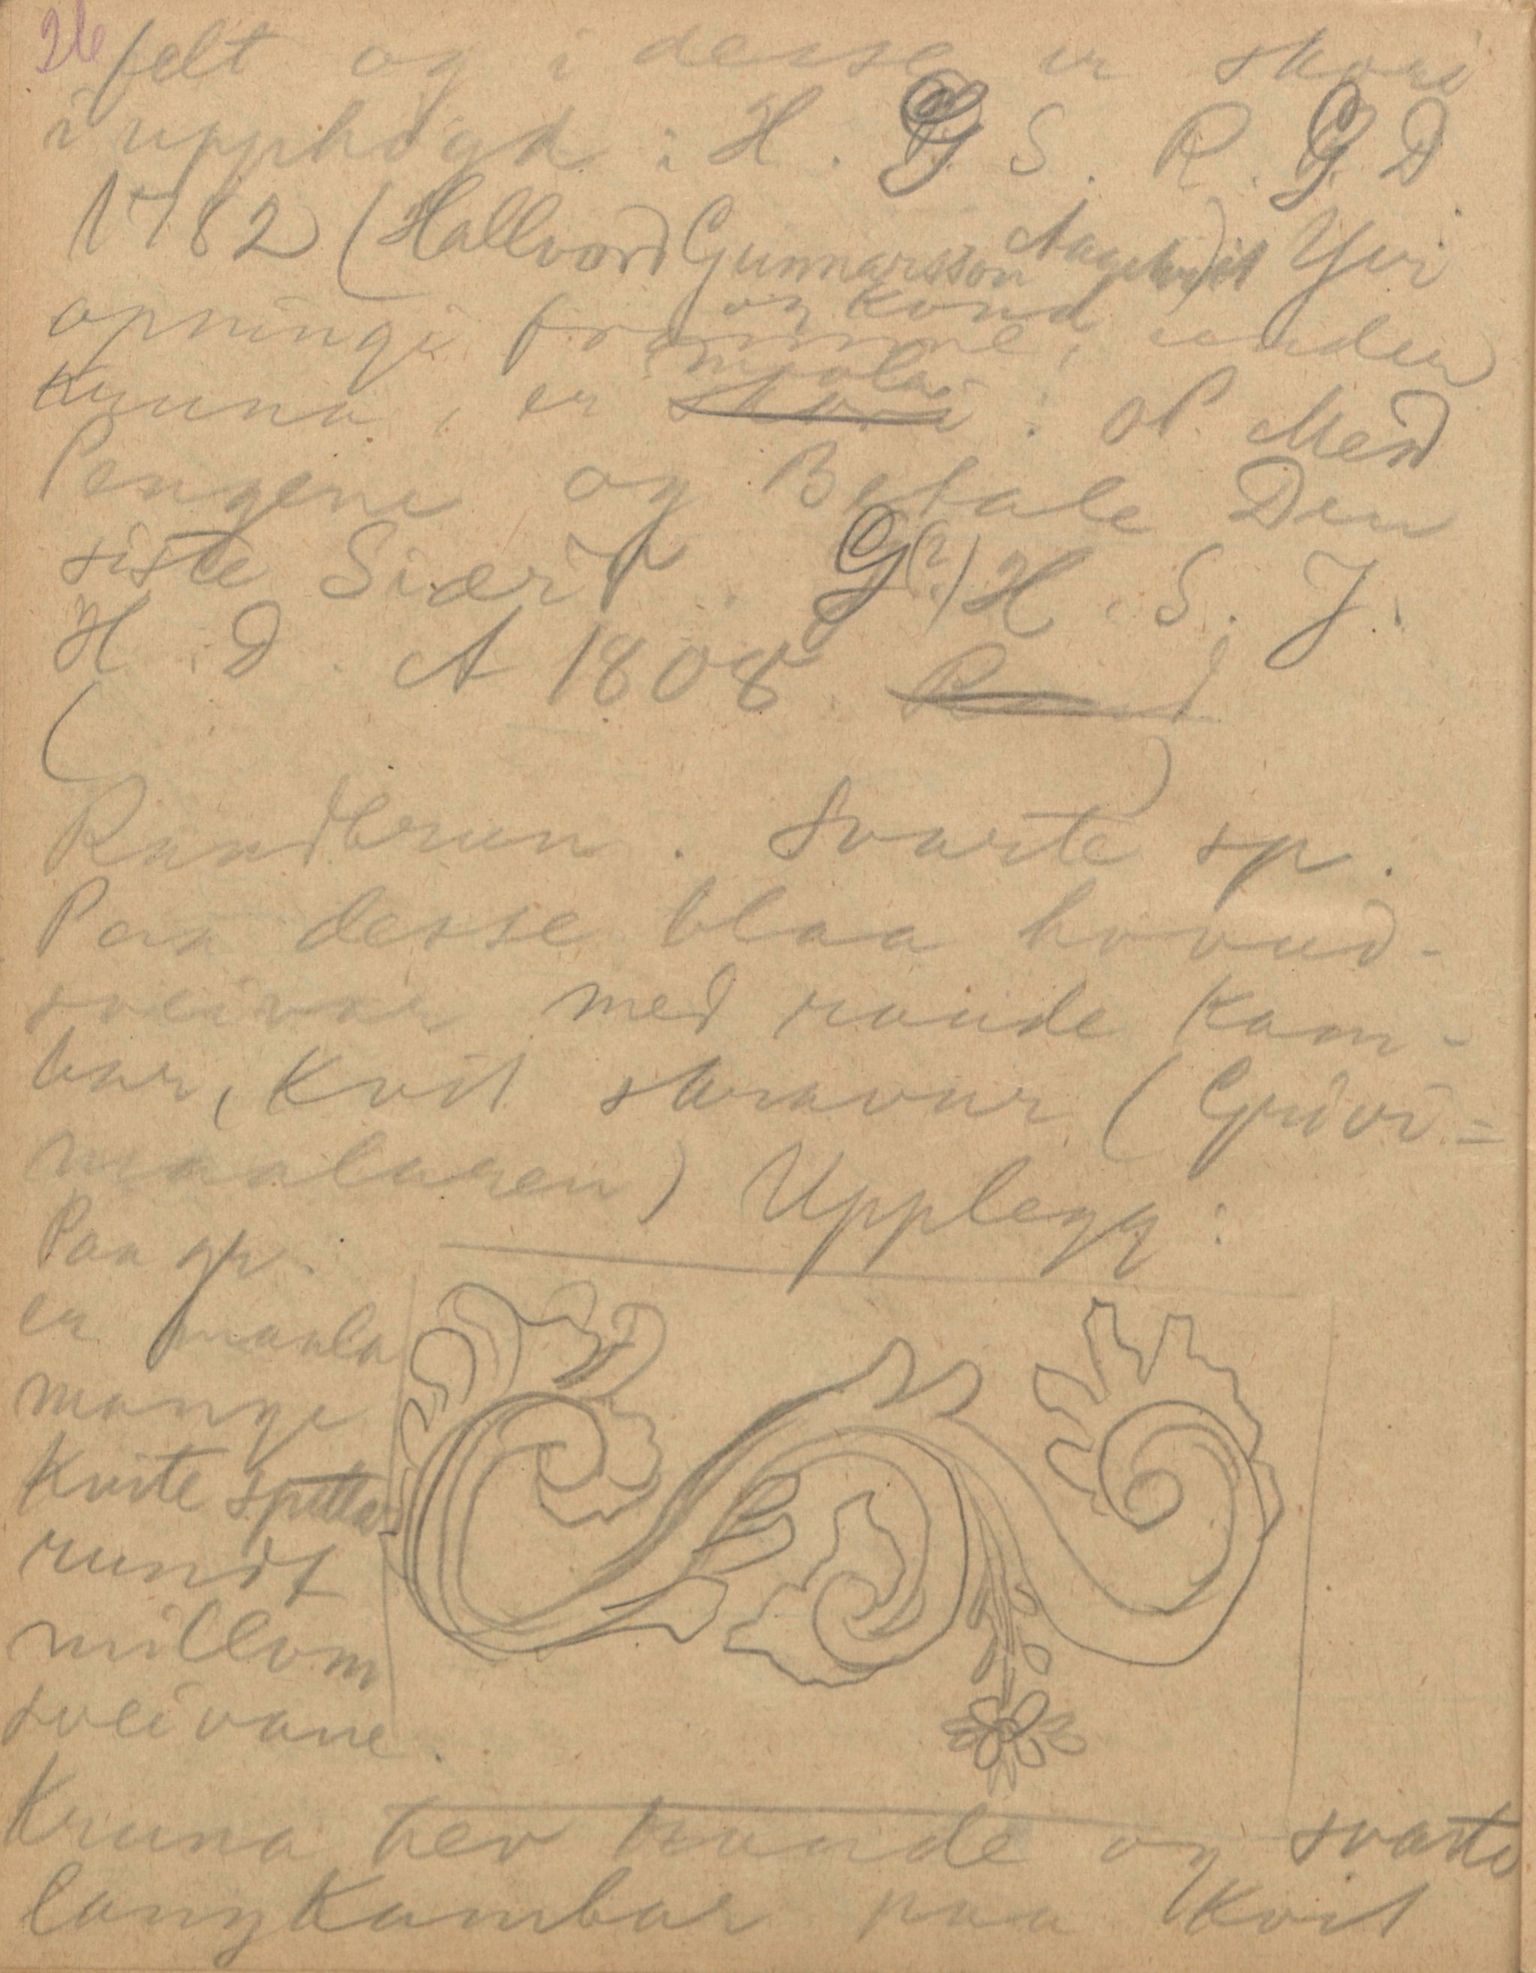 26
felt og i desse er skore
i upphøgd: H. G. S. R. G. D.
1782 (Hallvord Gunnarsson
og kona) Yvi
opningi framme, under
kruna, er maala: Med
Pengene og Betale Den
siste Siæril. G(?) H. S. J.
H. D. A 1808.
(
)
Raudbrun. Svarte sp.
Paa desse blaa hovud-
sveivar med raude kam-
bar, kvit skravur (Grivi=
maalaren) Upplegg:
Paa gr.
er maala
mange
kvite spittar
rundt
millom
sveivane.
Kruna hev raude og svarte
langkambar paa kvit